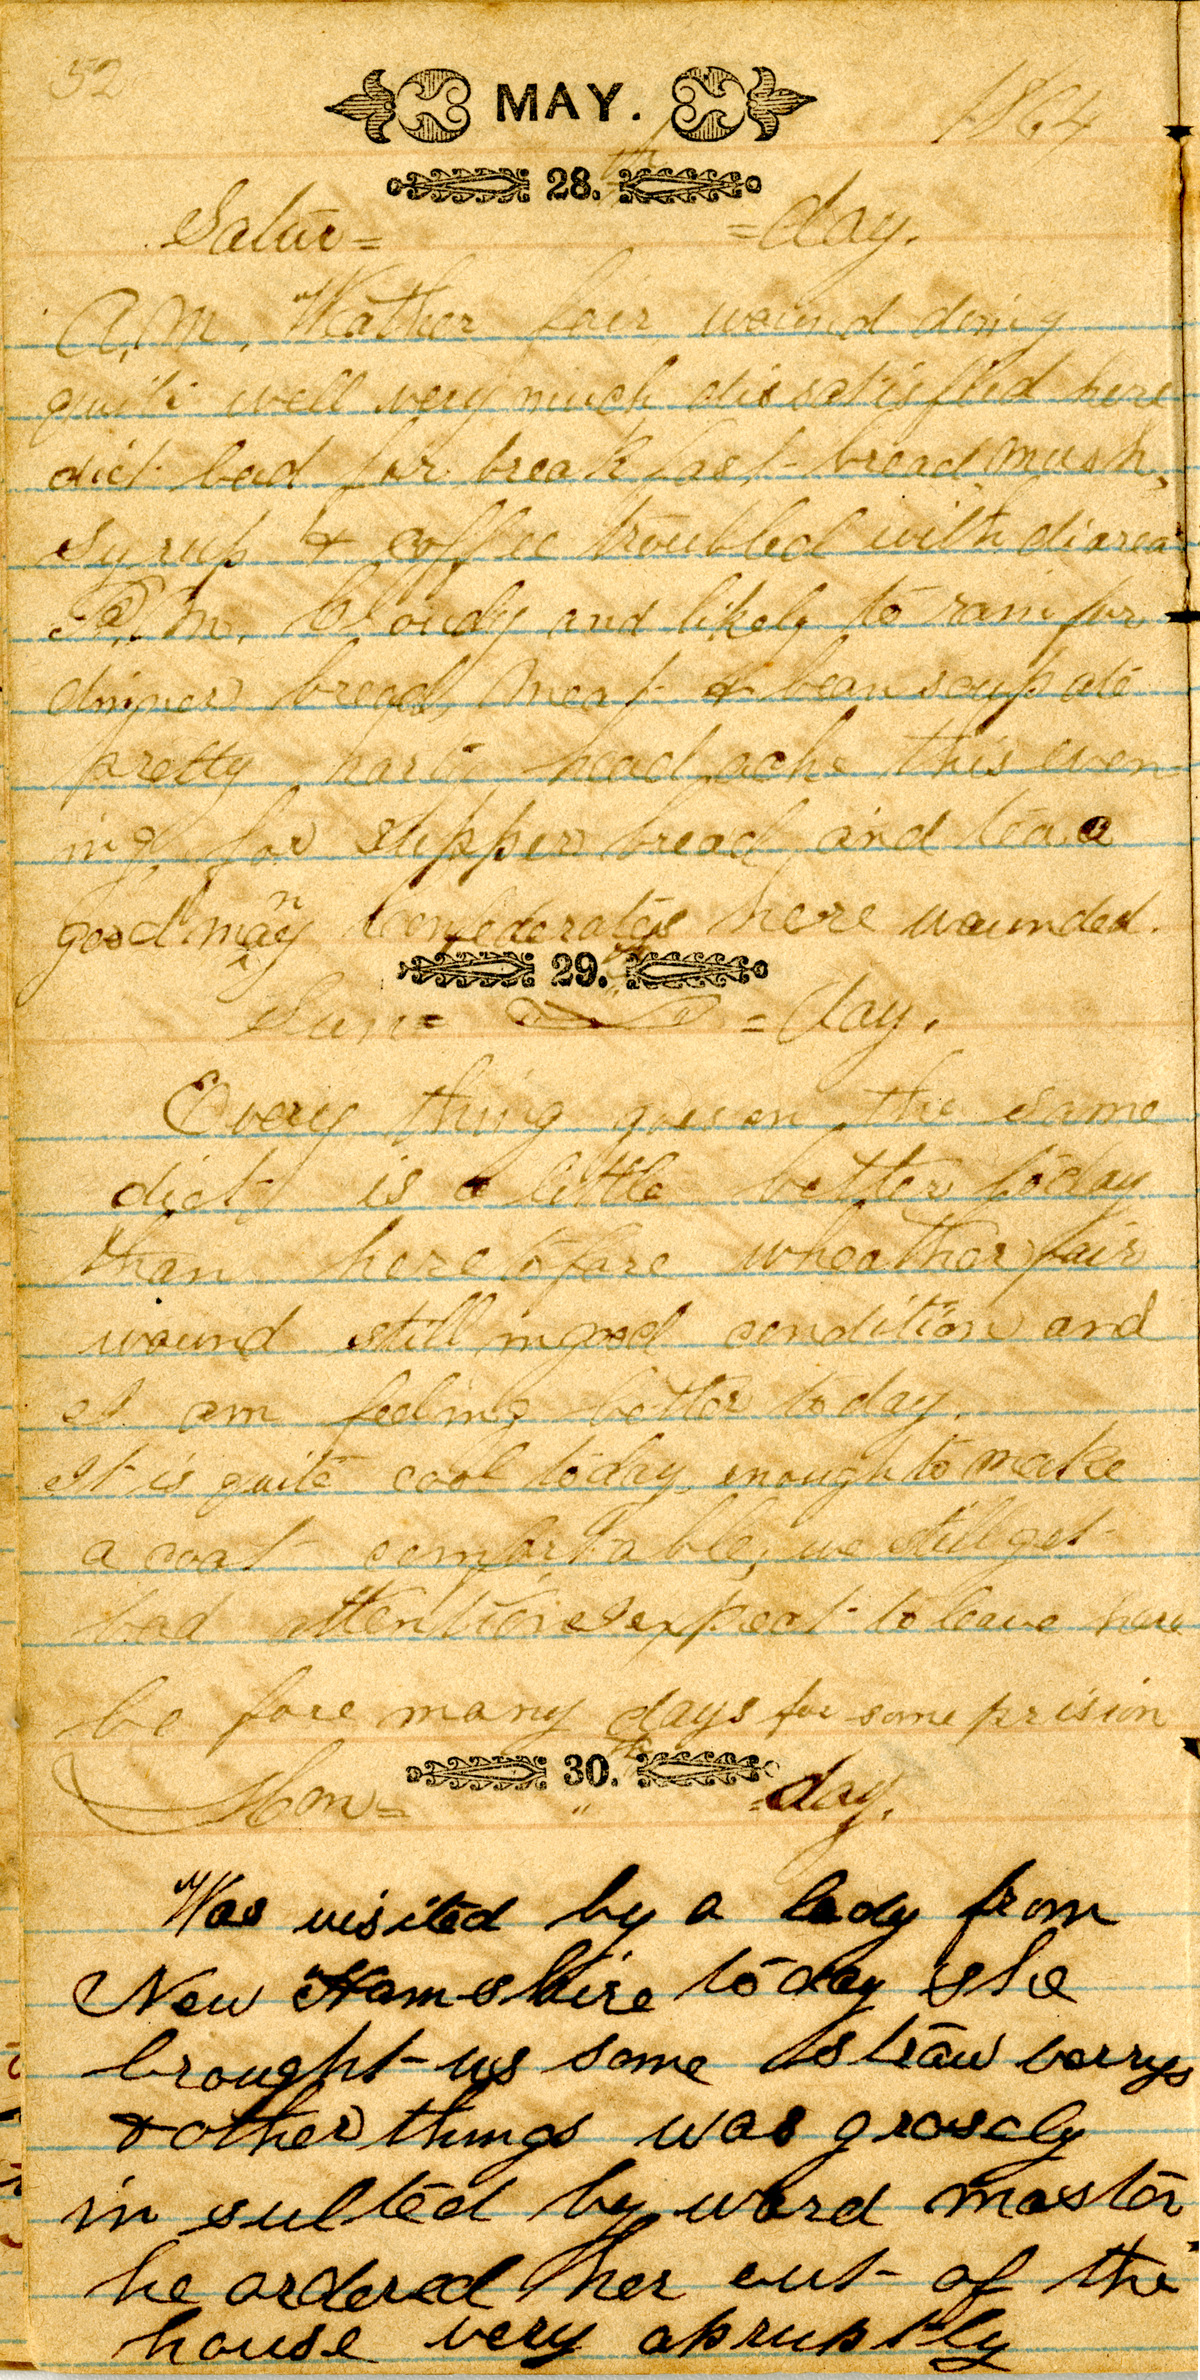 52 MAY. 1864
28.th
Satur= =day.
A.M. Weather fair wound doing
quite well very much dissatisfied here
diet bad for break fast bread, mush,
syrup & coffee troubled with diarea
P.M. Cloudy and likely to rain for
dinner bread, meat & bean soup ate
pretty harty head ache this even
ing for supper bread and tea a
good many Confederates here wounded.
29.th
Sun= =day.
Every thing goes on the same
diet is a little better today
than heretofore wheather fair
wound still in good condition and
I am feeling better to day.
It is quite cool today enough to make
a coat comfortable, we still get
bad attention I expect to leave here
be fore many days for some prision
30.th
Mon= " =day.
Was visited by a lady from
New Hamshire today she
brought us some straw berrys
& other things was grosely
in sulted by ward master
he ordered her out of the
house very apruptly